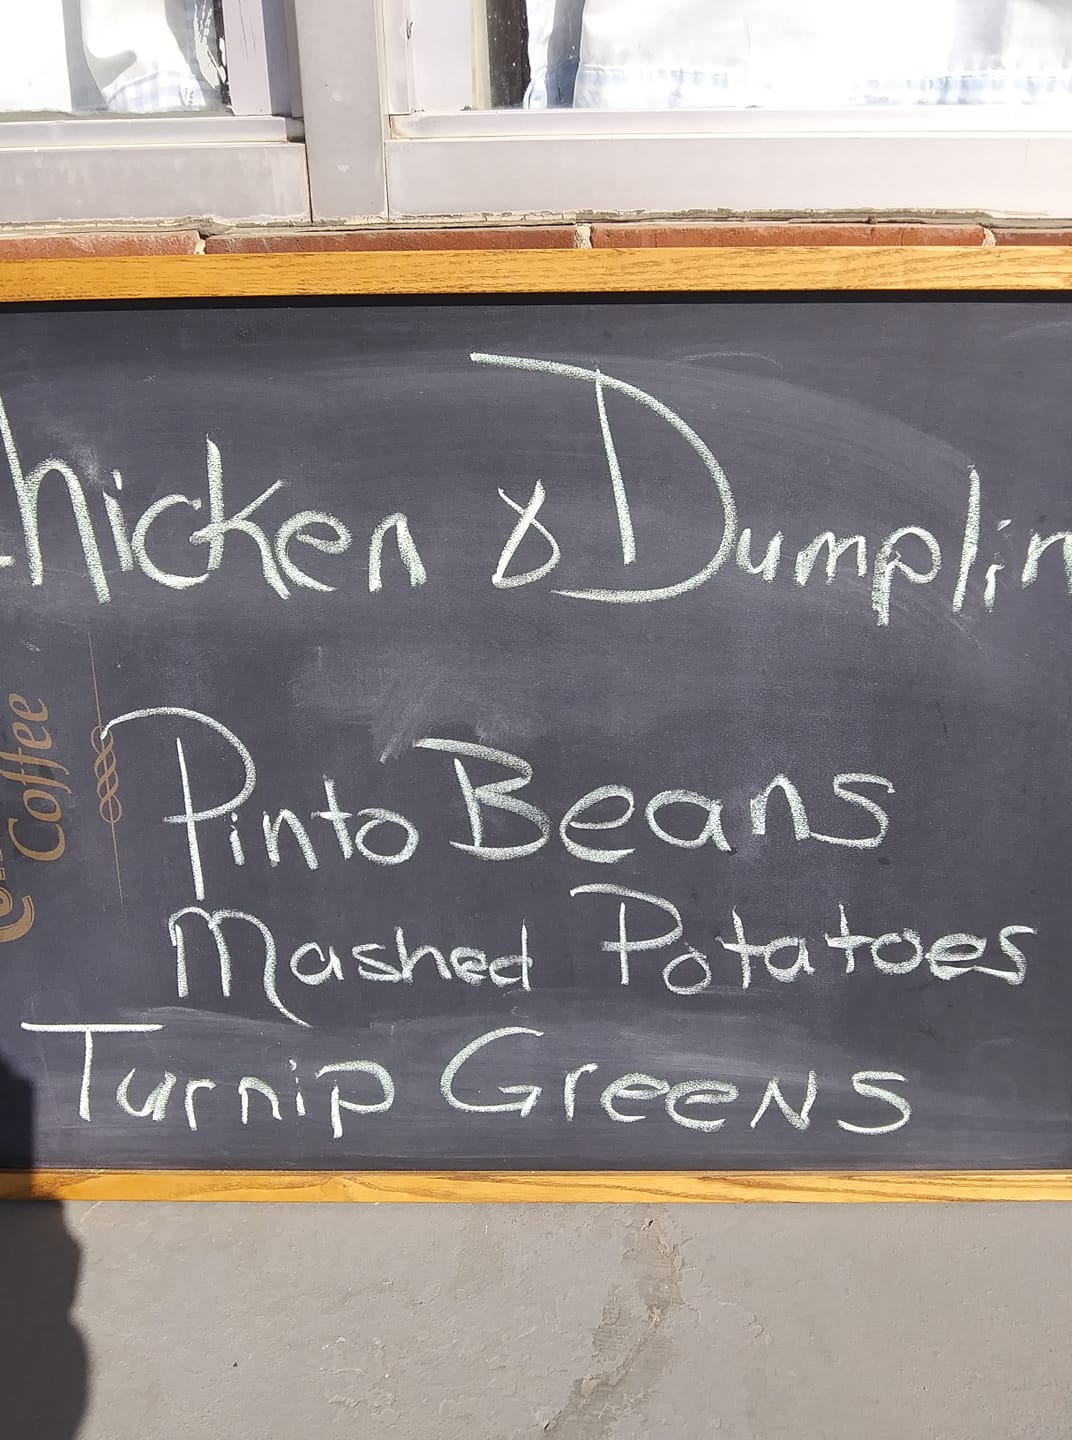 Chicken & Dumplin
Pinto Beans
Mashed Potatoes
Turnip Greens
Coffee